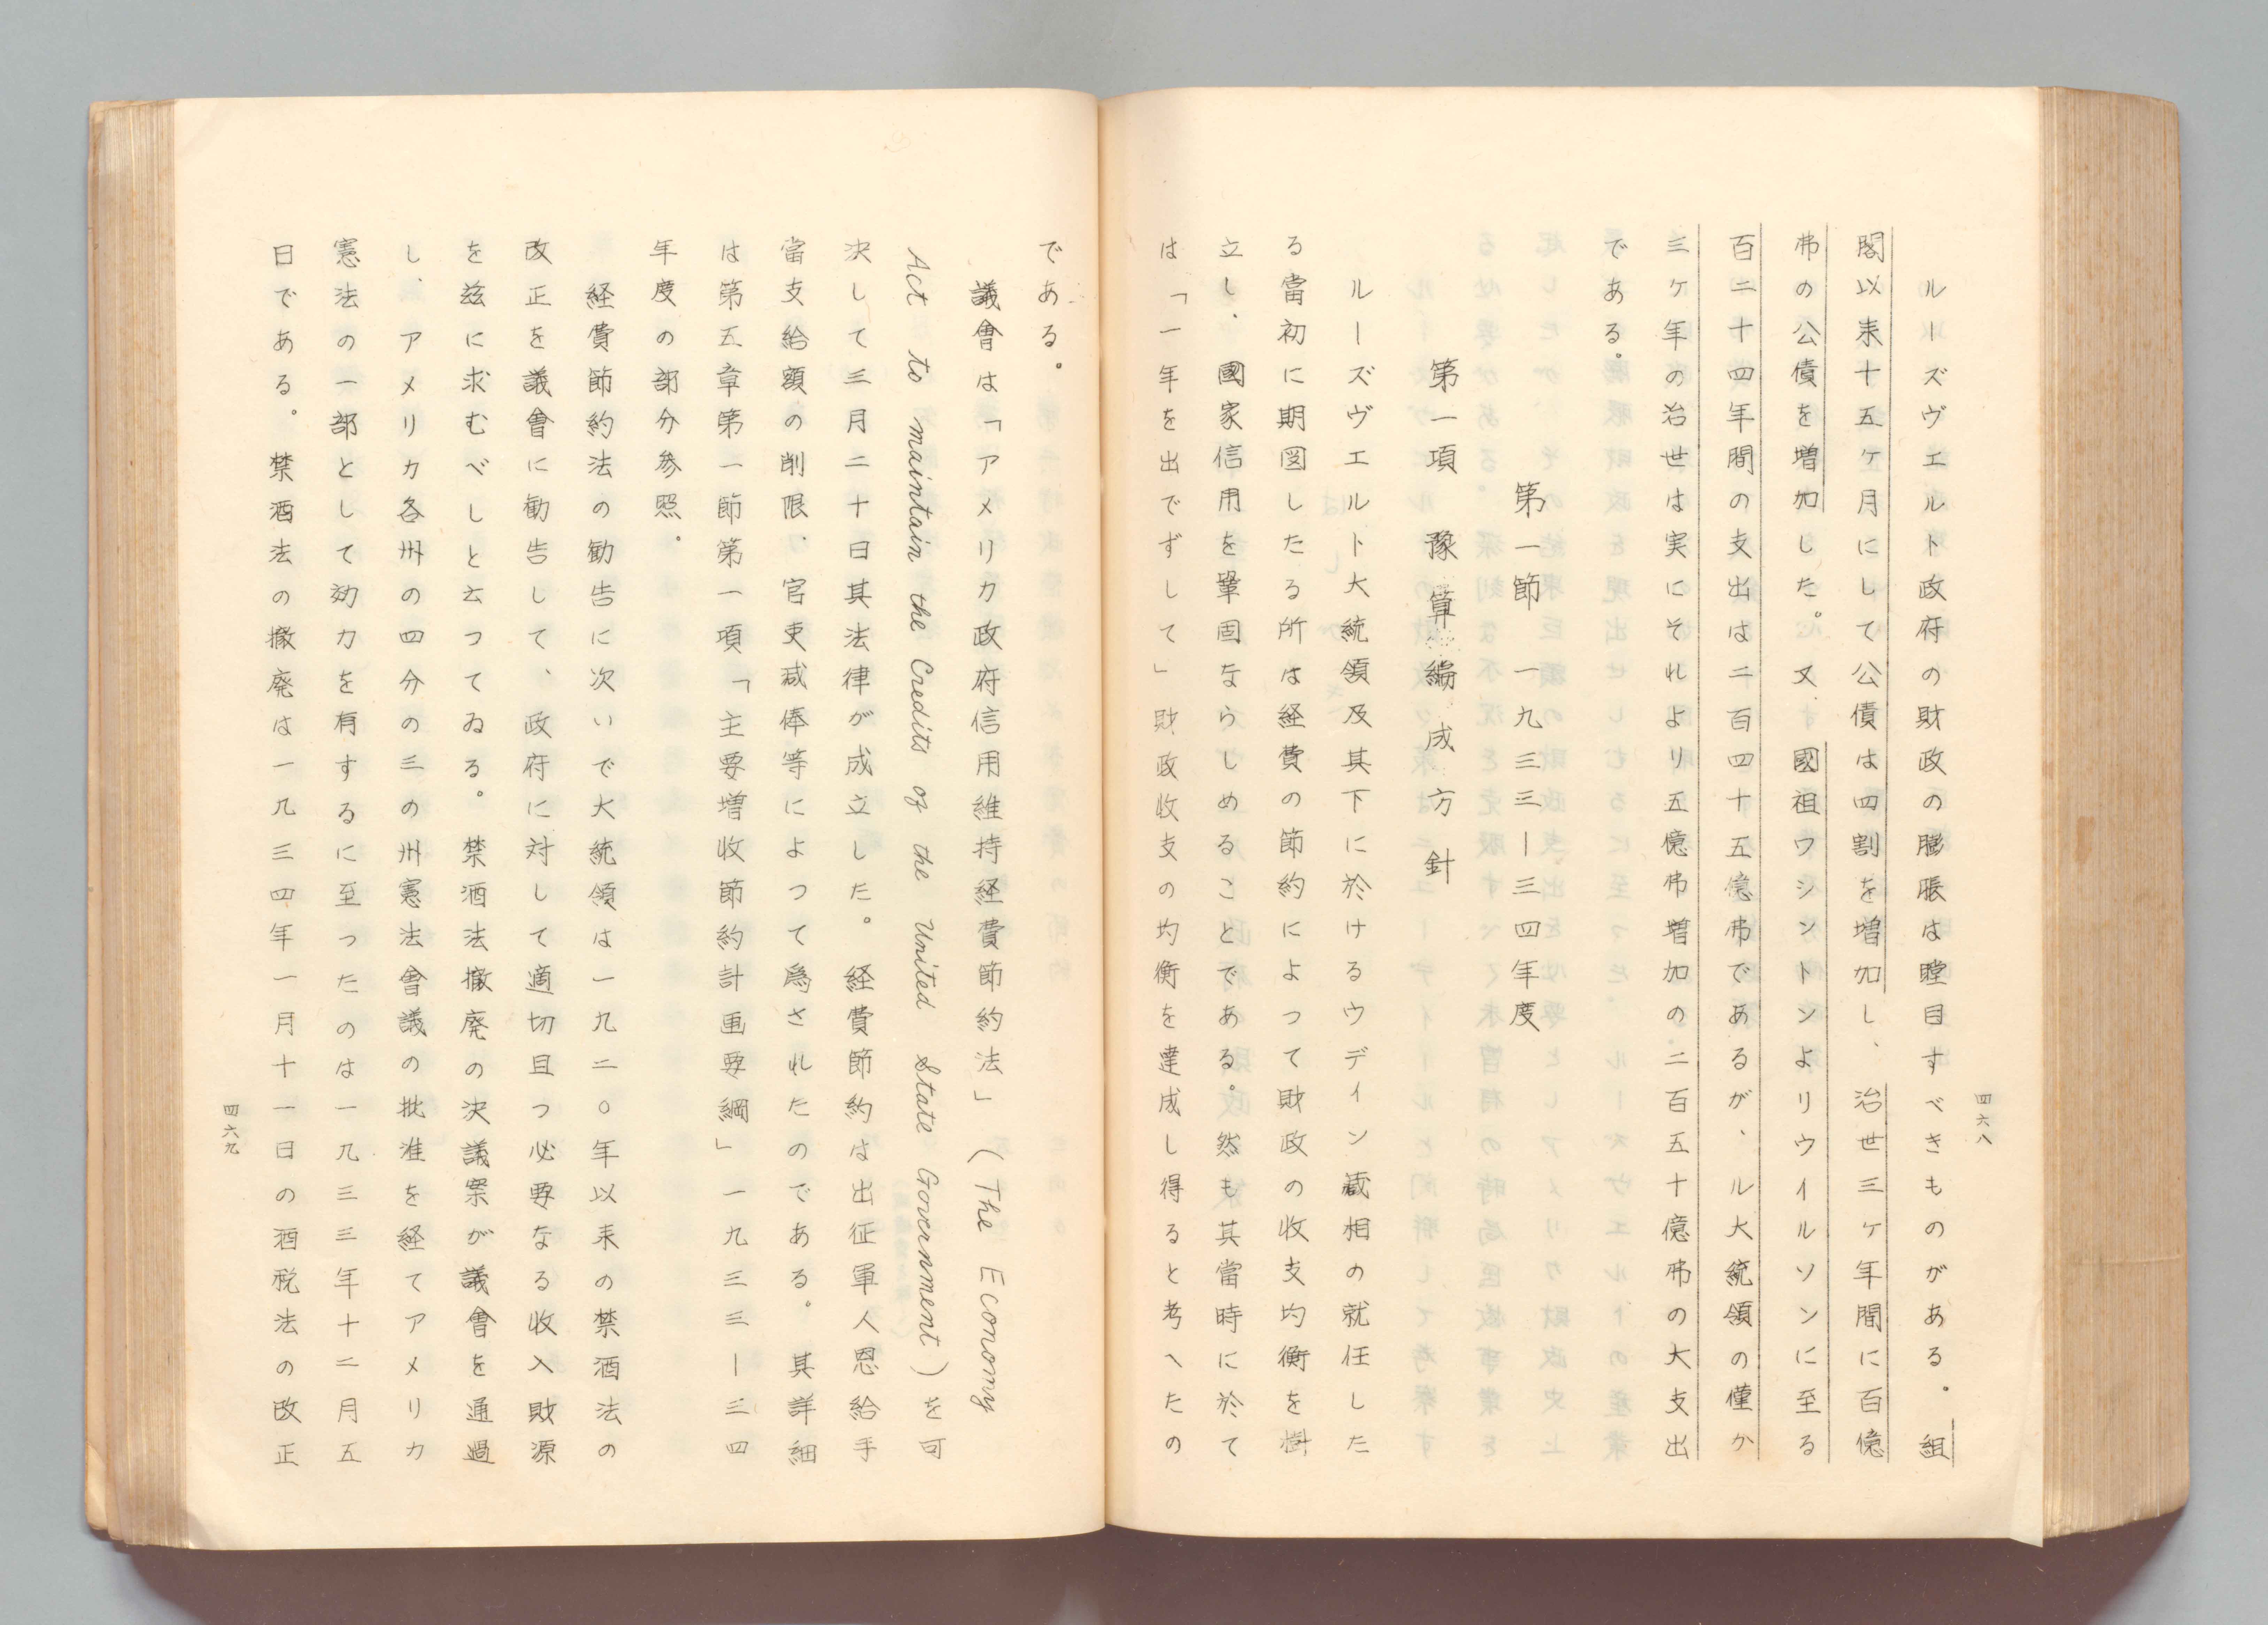 四六八
ルーズヴエルト政府の財政の膨脹は瞠目すべきものがある。組
閣以来十五ヶ月にして公債は四割を増加し、治世三ヶ年間に百億
弗の公債を増加した。又、國祖ワシントンよりウイルソンに至る
百二十四年間の支出は二百四十五億弗であるが、ル大統領の僅か
三ヶ年の治世は実にそれより五億弗増加の二百五十億弗の大支出
である。
第一節 一九三三ー三四年度
第一項 豫算編成方針
ルーズヴエルト大統領及其下に於けるウデイン蔵相の就任した
る當初に期図したる所は経費の節約によって財政の收支均衡を樹
立し、國家信用を鞏固ならしめることである。然も其當時に於て
は「一年を出でずして」財政收支の均衡を達成し得ると考へたの
である。
議會は「アメリカ政府信用維持経費節約法」(The Economy
Act to maintain the Credits of the United State Government)を可
決して三月二十日其法律が成立した。経費節約は出征軍人恩給手
當支給額の削限、官吏减俸等によつて爲されたのである。其詳細
は第五章第一節第一項「主要増收節約計画要綱」一九三三ー三四
年度の部分参照。
経費節約法の勧告に次いで大統領は一九二〇年以来の禁酒法の
改正を議會に勧告して、政府に対して適切且つ必要なる收入財源
を玆に求むべしと云つてゐる。禁酒法撤廃の決議案が議會を通過
し、アメリカ各州の四分の三の州憲法會議の批准を経てアメリカ
憲法の一部として効力を有するに至ったのは一九三三年十二月五
日である。禁酒法の撤廃は一九三四年一月十一日の酒税法の改正
四六九